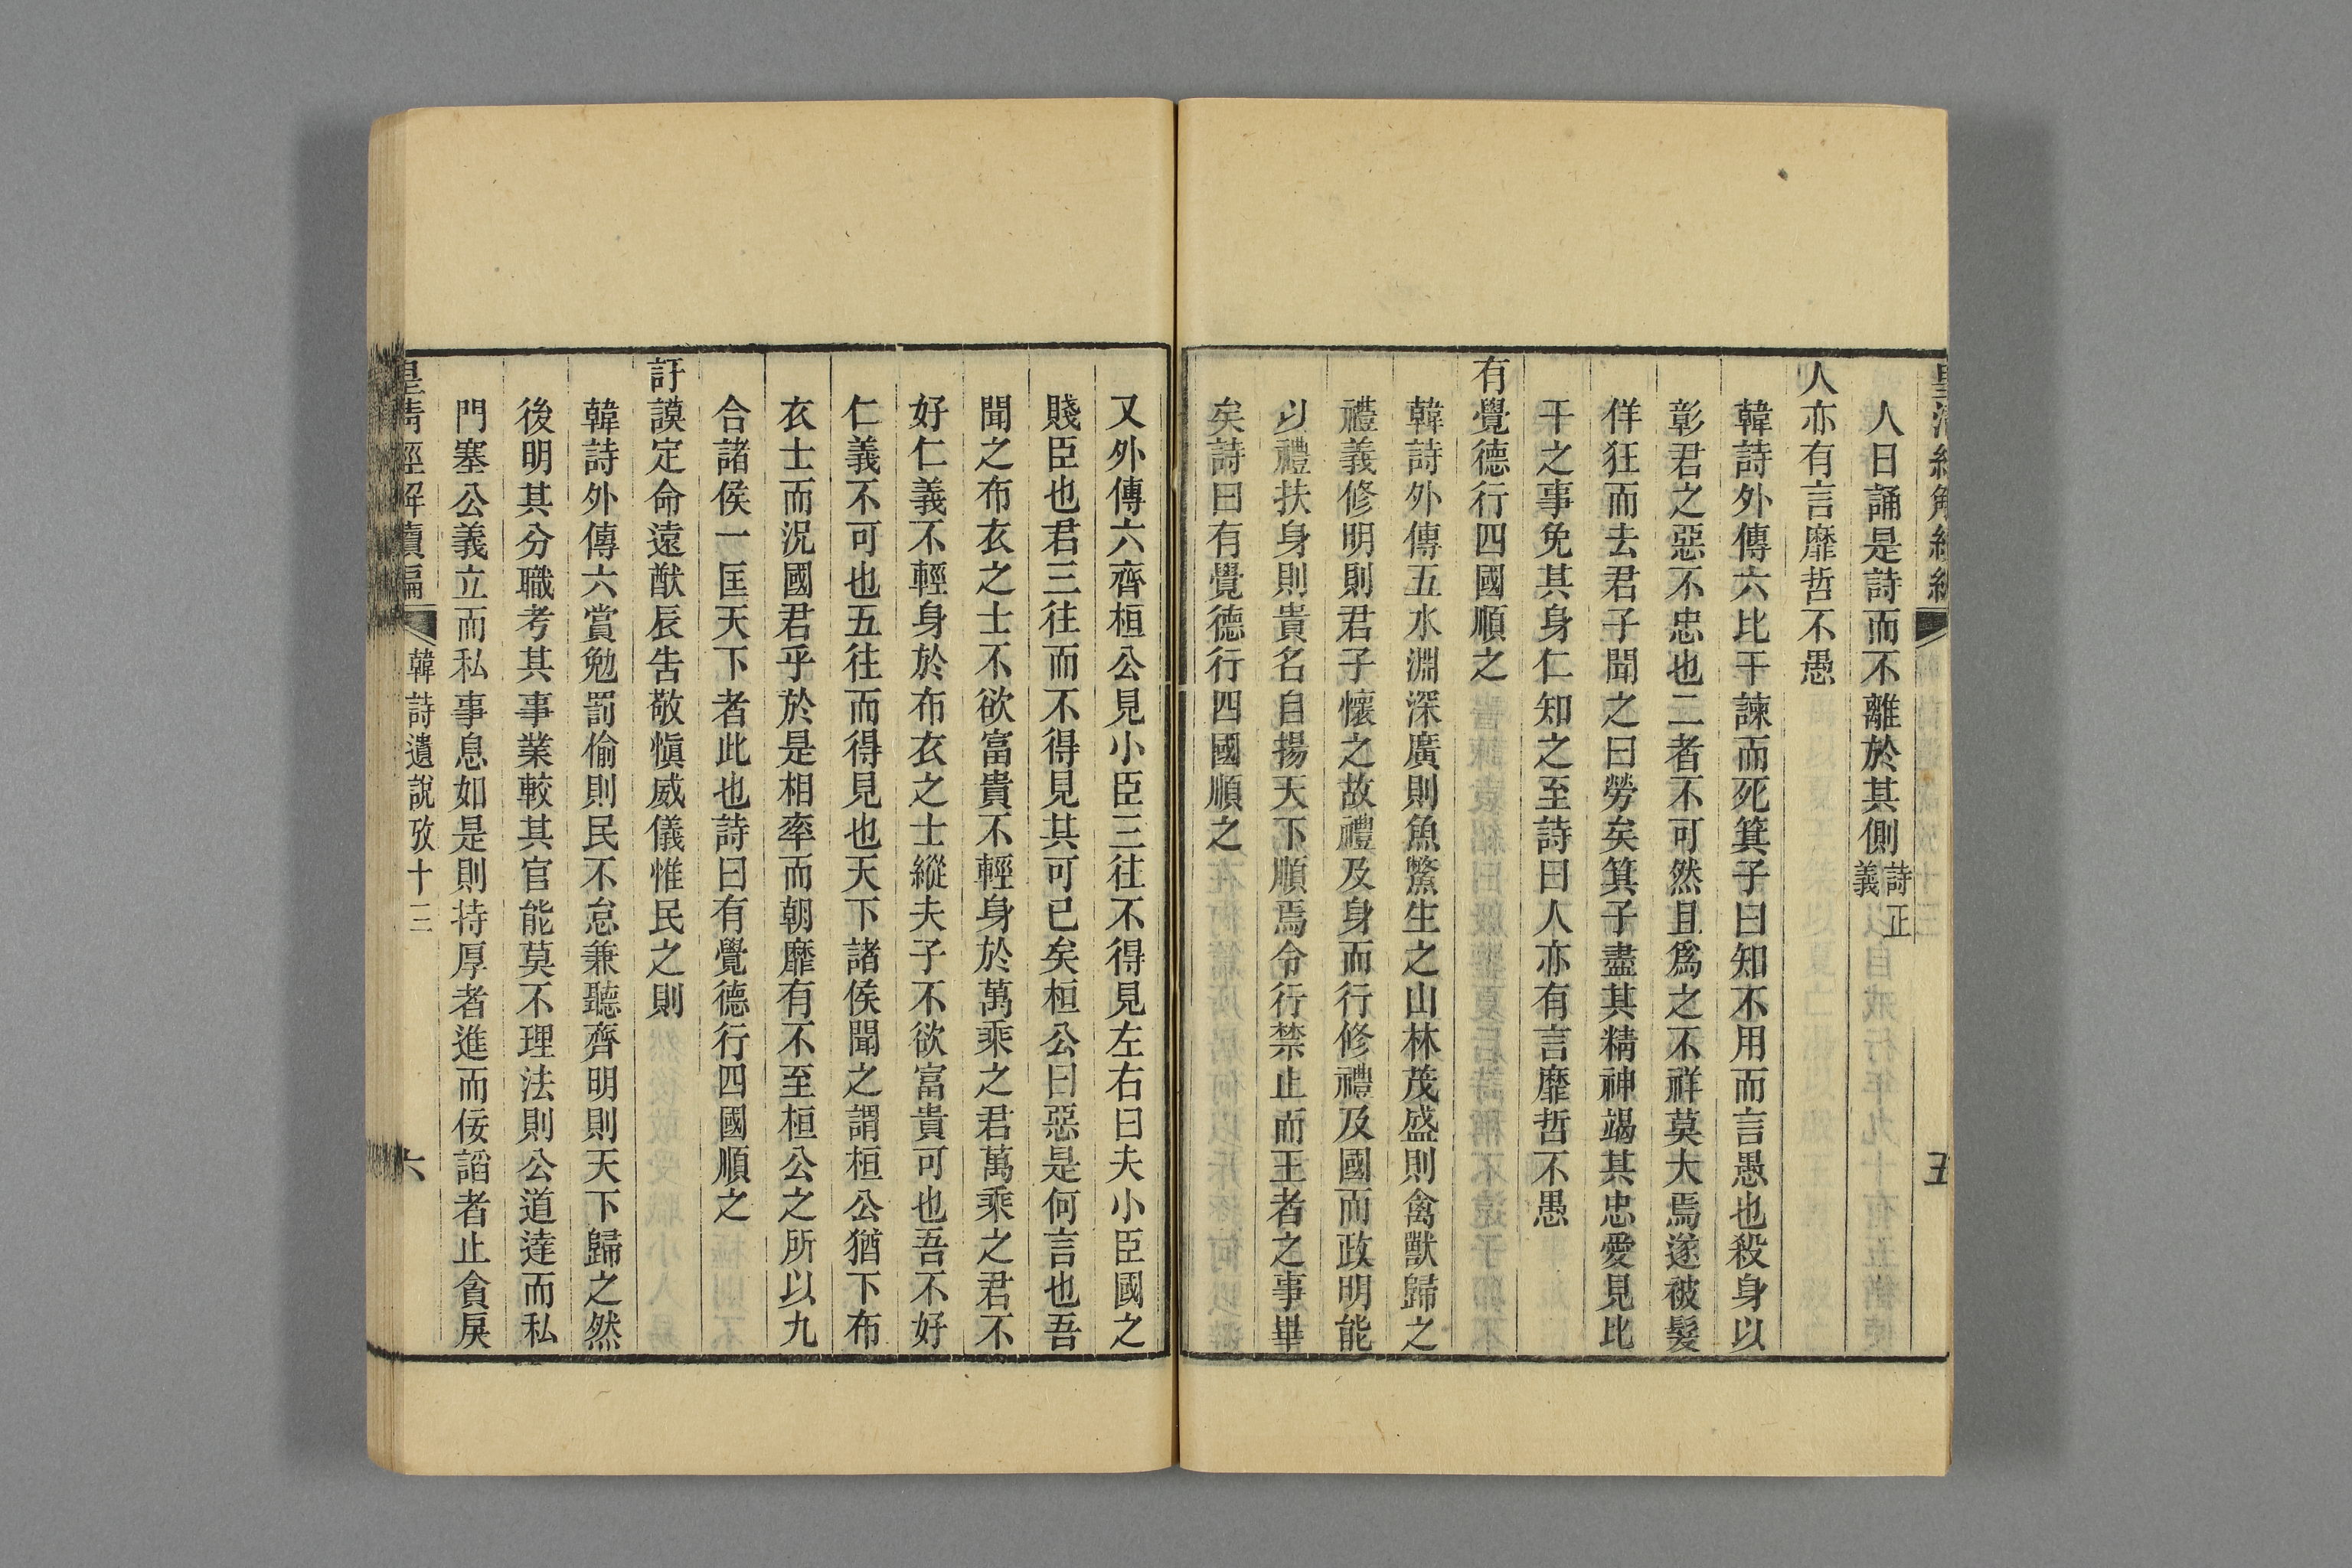 人曰誦是詩而不離於其側詩正義
人亦有言靡哲不愚
韓詩外傳六比干諫而死箕子曰知不用而言愚也殺身以
彰君之惡不忠也二者不可然且爲之不祥莫大焉遂被髮
佯狂而去君子聞之曰勞矣箕子盡其精神竭其忠愛見比
干之事免其身仁知之至詩曰人亦有言靡哲不愚
有覺德行四國順之
韓詩外傳五水淵深廣則魚鱉生之山林茂盛則禽獸歸之
禮義修明則君子懷之故禮及身而行修禮及國而政明能
以禮扶身則貴名自揚天下順焉令行禁止而王者之事畢
矣詩曰有覺德行四國順之
又外傳六齊桓公見小臣三往不得見左右曰夫小臣國之
賤臣也君三往而不得見其可已矣桓公曰惡是何言也吾
聞之布衣之士不欲富貴不輕身於萬乘之君萬乘之君不
好仁義不輕身於布衣之士縱夫子不欲富貴可也吾不好
仁義不可也五往而得見也天下諸侯聞之謂桓公猶下布
衣士而況國君乎於是相率而朝靡有不至桓公之所以九
合諸侯一匡天下者此也詩曰有覺德行四國順之
訏謨定命遠猷辰告敬愼威儀惟民之則
韓詩外傳六賞勉罰偷則民不怠兼聽齊明則天下歸之然
後明其分職考其事業較其官能莫不理法則公道達而私
門塞公義立而私事息如是則持厚者進而佞諂者止貪戾
皇清經解續編 韓詩遺說攷十三 六